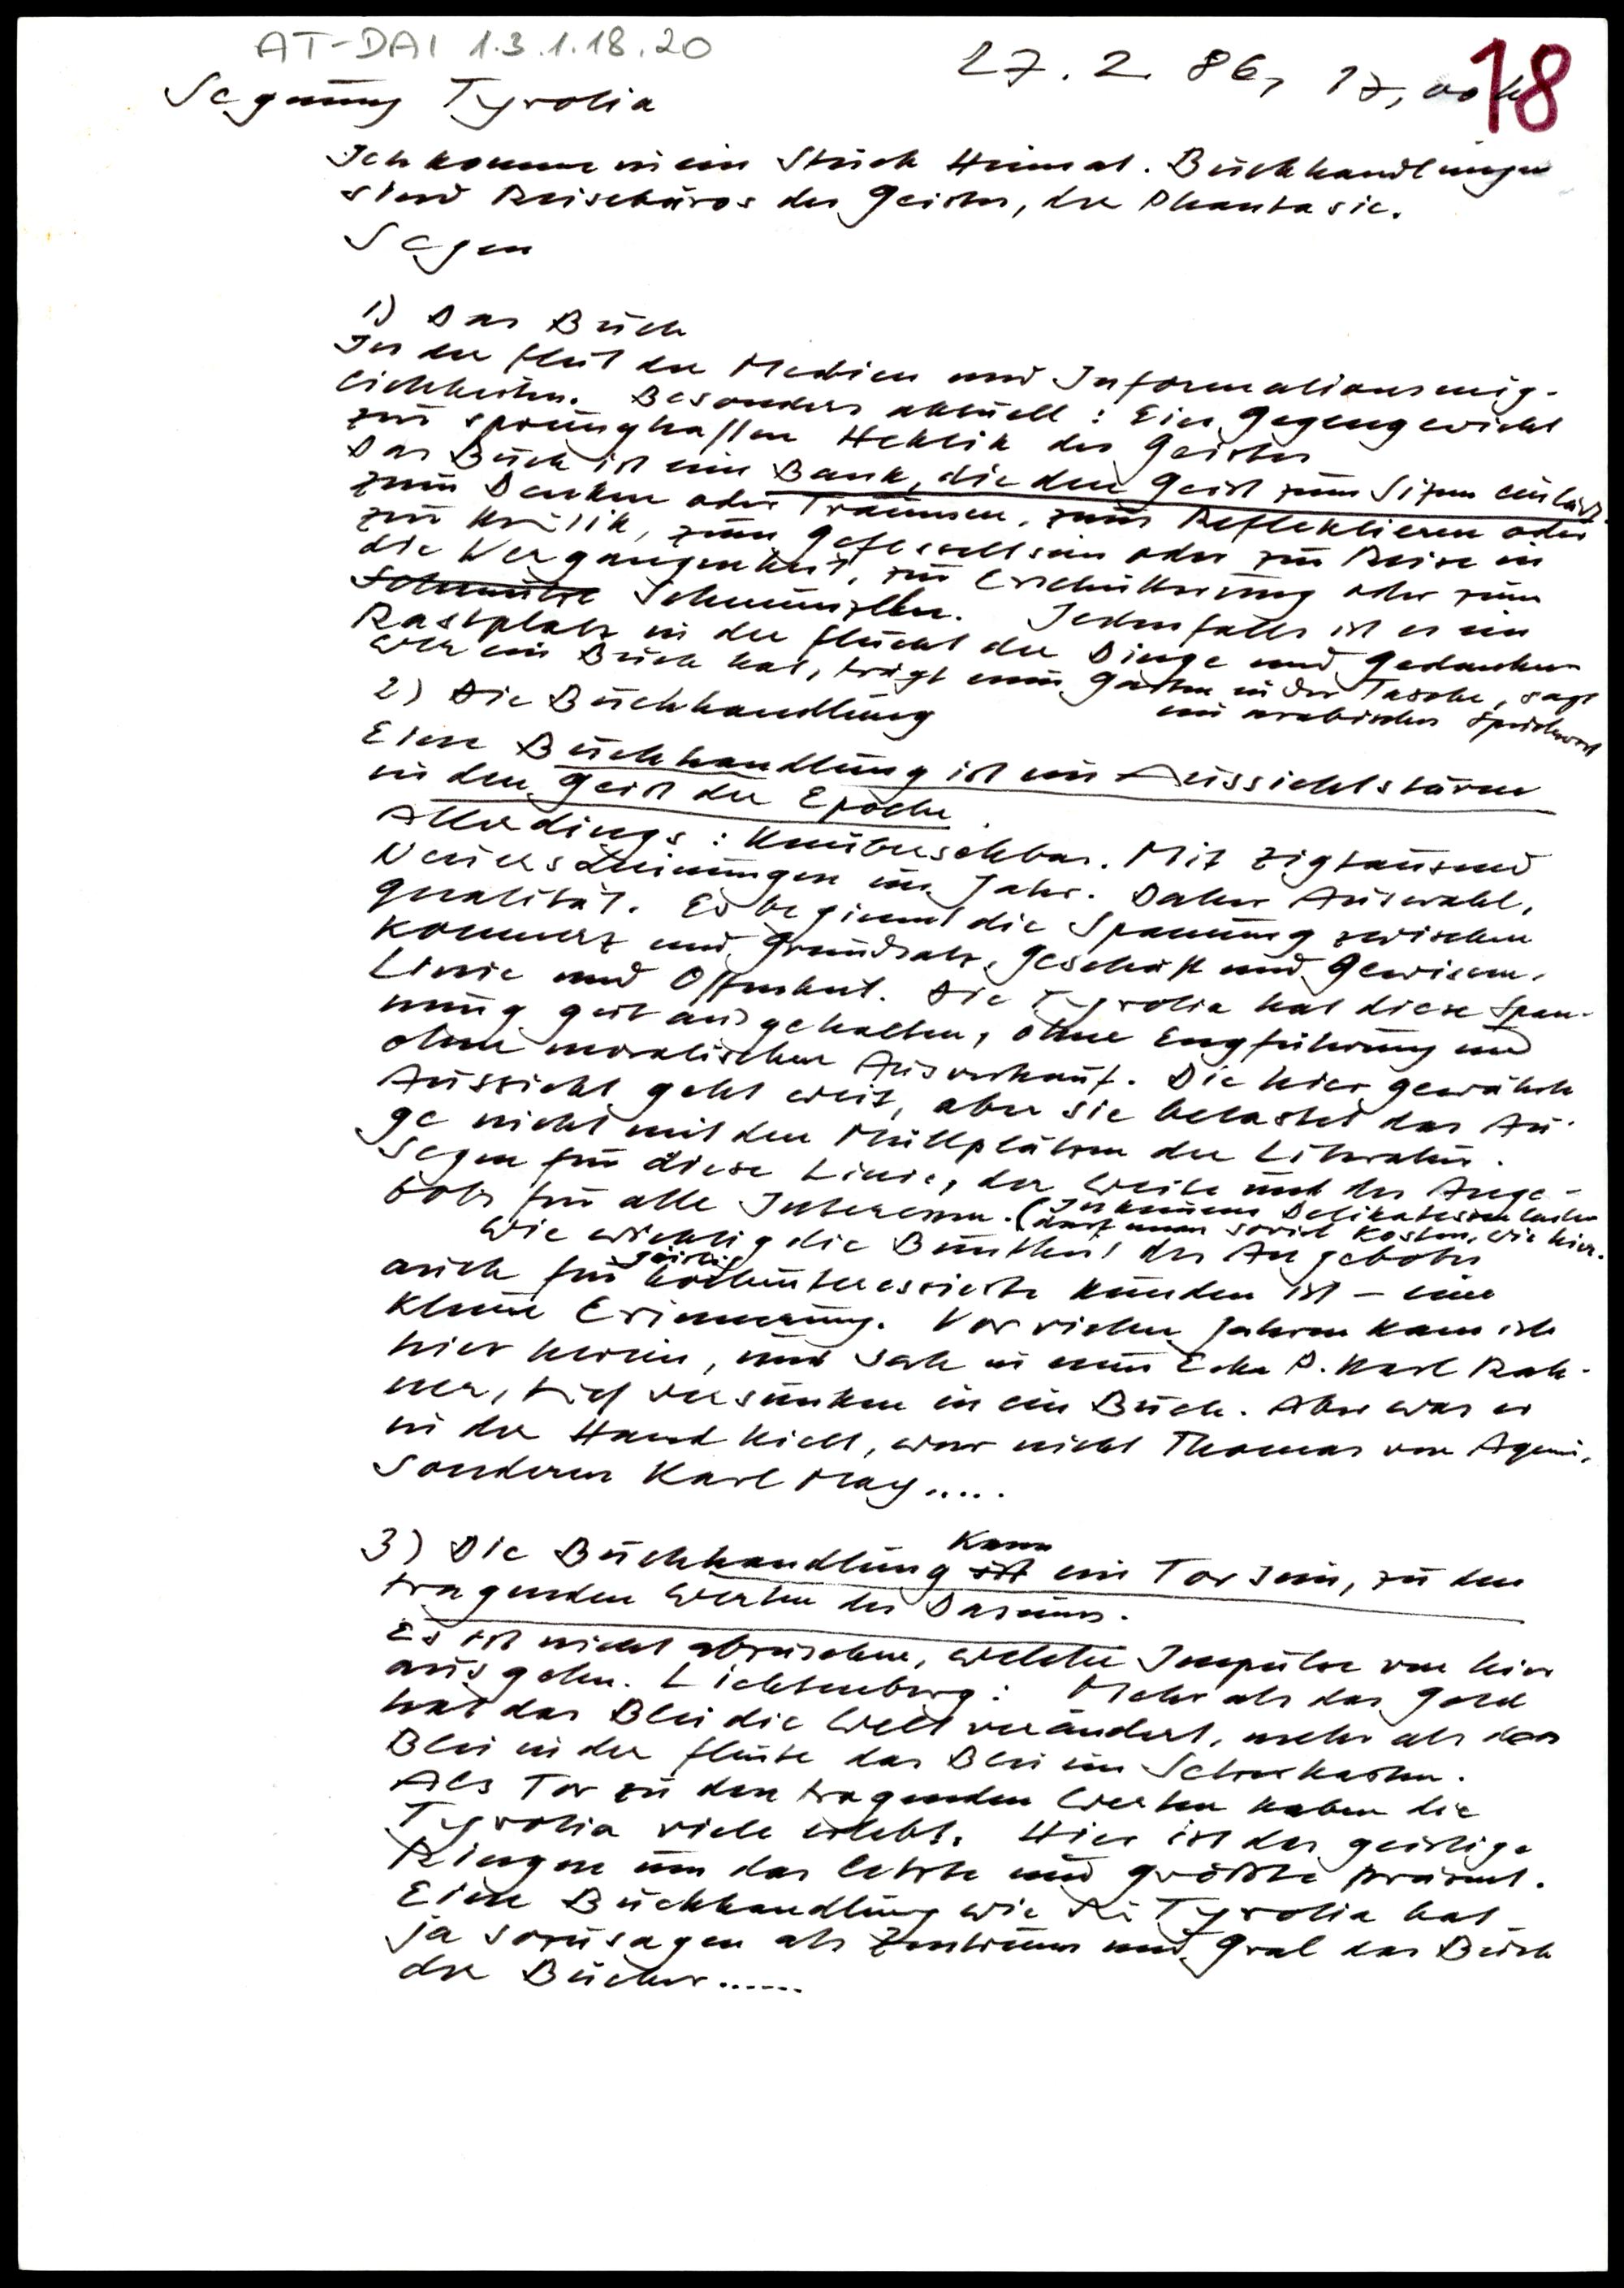 AT-DAI 1.3.1.18.20
27.2.86, 17,00 h
18
Segnung Tyrolia
Ich komme in ein Stück Heimat. Buchhandlungen
sind Reisebüros des Geistes, der Phantasie.
Segen
1) Das Buch
In der Flut der Medien und Informationsmög-
lichkeiten. Besonders aktuell: Ein Gegengewicht
zur sprunghaften Hektik des Geistes
Das Buch ist eine Bank, die den Geist zum Sitzen einlädt.
zum Denken oder Träumen, zum Reflektieren oder
zur Kritik, zum Gefesseltsein oder zur Reise in
die Vergangenheit, zur Erschütterung oder zum
Schmunzeln. Jedenfalls ist es ein
Rastplatz in der Flucht der Dinge und Gedanken
Wer ein Buch hat, trägt einen Garten in der Tasche, sagt
ein arabisches Sprichwort
2) Die Buchhandlung
Eine Buchhandlung ist ein Aussichtsturm
in den Geist der Epoche.
Allerdings: Unübersehbar. Mit zigtausend
Neuerscheinungen im Jahr. Daher Auswahl,
Qualität. Es beginnt die Spannung zwischen
Kommerz und Grundsatz, Geschäft und Gewissen,
Linie und Offenheit. Die Tyrolia hat diese Span-
nung gut ausgehalten, ohne Engführung und
ohne moralischen Ausverkauf. Die hier gewährte
Aussicht geht weit, aber sie belastet das Au-
ge nicht mit den Müllplätzen der Literatur.
Segen für diese Linie, der Weite und des Ange-
bots für alle Interessen. (In keinem Delikatessenladen
darf man soviel kosten, wie hier.
Wie wichtig die Buntheit des Angebotes
auch für geistig hochinteressierte Kunden ist – eine
kleine Erinnerung. Vor vielen Jahren kam ich
hier herein, und sah in einer Ecke P. Karl Rah-
ner, tief versunken in ein Buch. Aber was er
in der Hand hielt, war nicht Thomas von Aquin,
sondern Karl May.....
3) Die Buchhandlung ist kann ein Tor sein, zu den
tragenden Werten des Daseins.
Es ist nicht abzusehen, welche Impulse von hier
ausgehen. Lichtenberg: Mehr als das Gold
hat das Blei die Welt verändert, mehr als das
Blei in der Flinte das Blei im Setzerkasten.
Als Tor zu den tragenden Werten haben die
Tyrolia viele erlebt. Hier ist das geistige
Ringen um das letzte und größte präsent.
Eine Buchhandlung wie die Tyrolia hat
ja sozusagen als Zentrum und Gral das Buch
der Bücher......